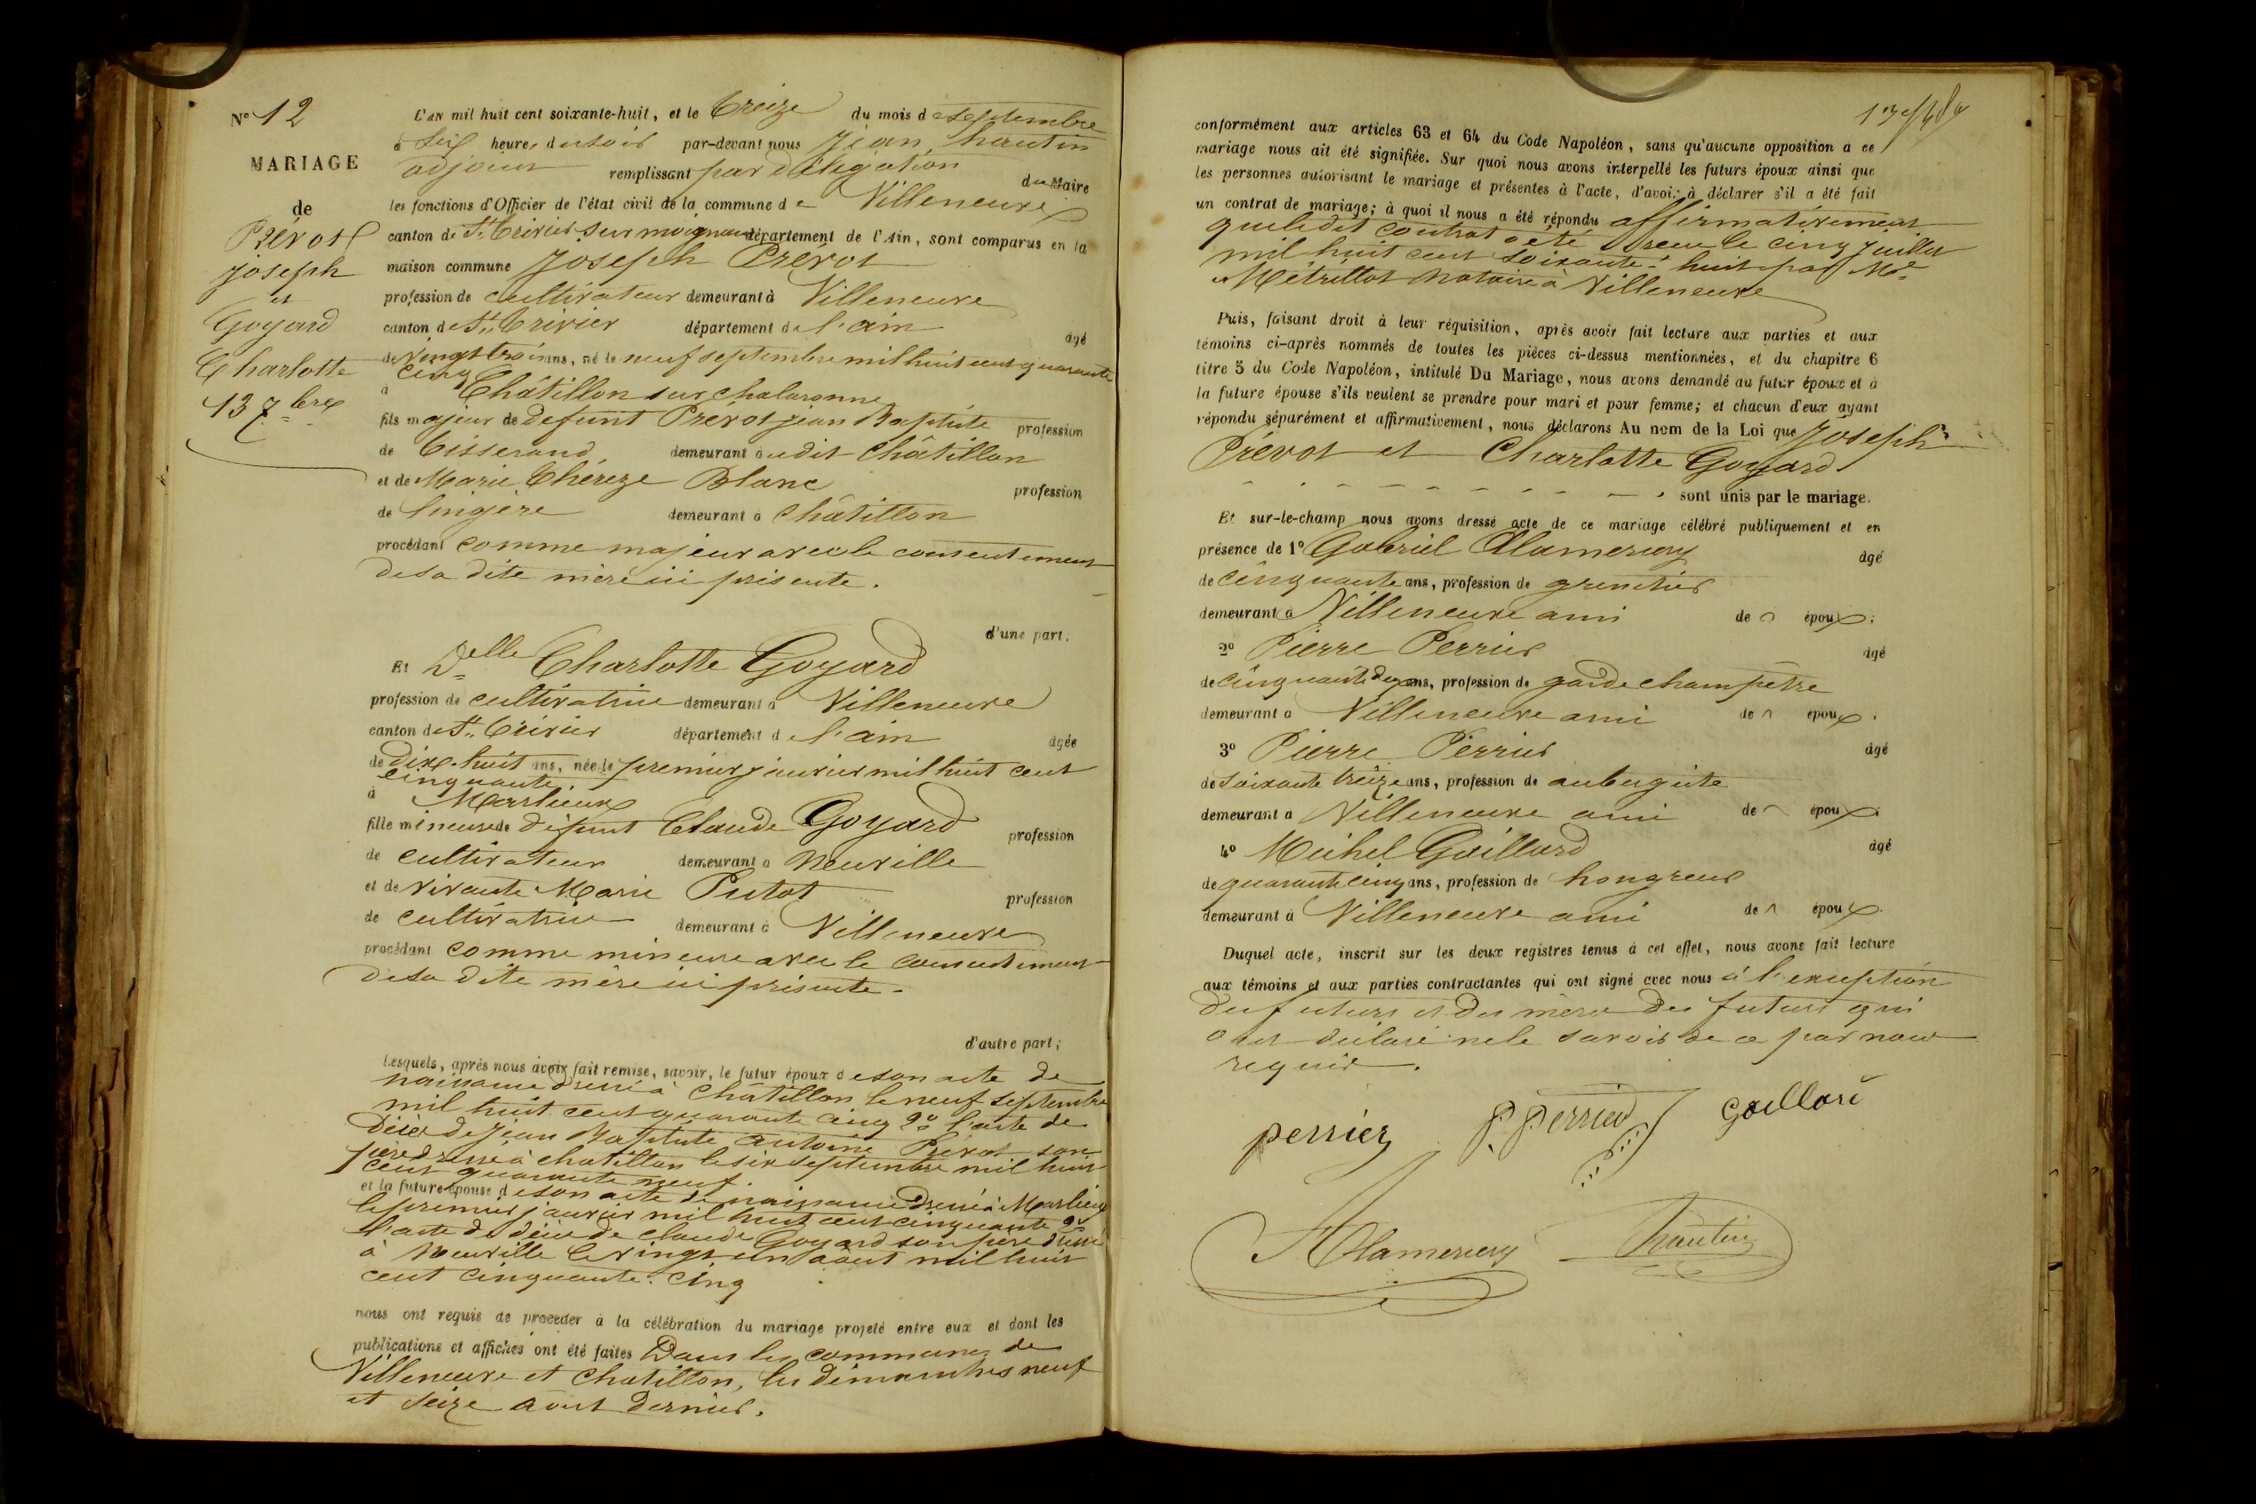 N° 12
MARIAGE
de
Prévost
joseph
et
Goyard
Charlotte
13 7bre
L'an mil huit cent soixante-huit, et le treize du mois de septembre
à six heures du soir par-devant nous jean hautin
adjoint remplissant par délégation du Maire
les fonctions d'Officier de l'état civil de la commune de Villeneuve
canton de St Trivier sur moignans département de l'Ain, sont comparus en la
maison commune Joseph Prevot
profession de cultivateur demeurant à Villeneuve
canton de St Trivier département de l'ain âgé
de vingt trois ans, né le neuf septembre mil huit cent quarante
cinq
à Châtillon sur chalaronne
fils majeur de defunt Prevot jean Baptiste profession
de tisserand, demeurant audit Châtillon
et de Marie thérèze Blanc profession
de lingère demeurant à Châtillon
procédant comme majeur avec le consentement
de sa dite mère ici présente.
d'une part.
Et Delle Charlotte Goyard
profession de cultivatrice demeurant à Villeneuve
canton de St Trivier département de l'ain âgée
de dix-huit ans, née le premier janvier mil huit cent
cinquante
à Marlieux
fille mineure de défunt Claude Goyard profession
de cultivateur demeurant à Neuville
et de vivante Marie Putot profession
de cultivatrice demeurant à Villeneuve
procédant comme mineure avec le consentement
de sa dite mère ici présente.
d'autre part;
Lesquels, après nous avoir fait remise, savoir, le futur époux de son acte de
naissance dressé à Châtillon le neuf septembre
mil huit cent quarante cinq 2° l'acte de
décès de jean Baptiste antoine Prévot son
père dressé à chatillon le six septembre mil huit
cent quarante neuf.
et la future épouse de son acte de naissance dressé à Marlieux
le premier janvier mil huit cent cinquante 2°
l'acte de décès de claude Goyard son père dressé
à Neuville le vingt un août mil huit
cent cinquante cinq
nous ont requis de procéder à la célébration du mariage projeté entre eux et dont les
publications et affiches ont été faites Dans les communes de
Villeneuve et Chatillon, les dimanches neuf
et seize août dernier.
conformément aux articles 63 et 64 du Code Napoléon, sans qu'aucune opposition à ce
mariage nous ait été signifiée. Sur quoi nous avons interpellé les futurs époux ainsi que
les personnes autorisant le mariage et présentes à l'acte, d'avoir à déclarer s'il a été fait
un contrat de mariage; à quoi il nous a été répondu affirmativement
que ledit contrat a été recu le cinq juillet
mil huit cent soixante-huit par Me
Métrillot notaire à Villeneuve
Puis, faisant droit à leur réquisition, après avoir fait lecture aux parties et aux
témoins ci-après nommés de toutes les pièces ci-dessus mentionnées, et du chapitre 6
titre 5 du Code Napoléon, intitulé Du Mariage, nous avons demandé au futur époux et à
la future épouse s'ils veulent se prendre pour mari et pour femme; et chacun d'eux ayant
répondu séparément et affirmativement, nous déclarons Au nom de la Loi que Joseph
Prévot et Charlotte Goyard
sont unis par le mariage.
Et sur-le-champ nous avons dressé acte de ce mariage célébré publiquement et en
présence de 1° Gabriel Alamercery âgé
de cinquante ans, profession de grenetier
demeurant à Villeneuve ami de époux;
2° Pierre Perrier âgé
de cinquante deux ans, profession de garde champêtre
demeurant à Villeneuve ami de époux.
3° Pierre Perrier âgé
de soixante treize ans, profession de aubergiste
demeurant à Villeneuve ami de époux.
4° Michel Gaillard âgé
de quarante cinq ans, profession de hongreur
demeurant à Villeneuve ami de époux.
Duquel acte, inscrit sur les deux registres tenus à cet effet, nous avons fait lecture
aux témoins et aux parties contractantes qui ont signé avec nous à l'exception
des futurs et des mères des futurs qui
ont déclaré ne le savoir de ce par nous
requis.
perrier P. perrier gaillard
Alamercery hautin